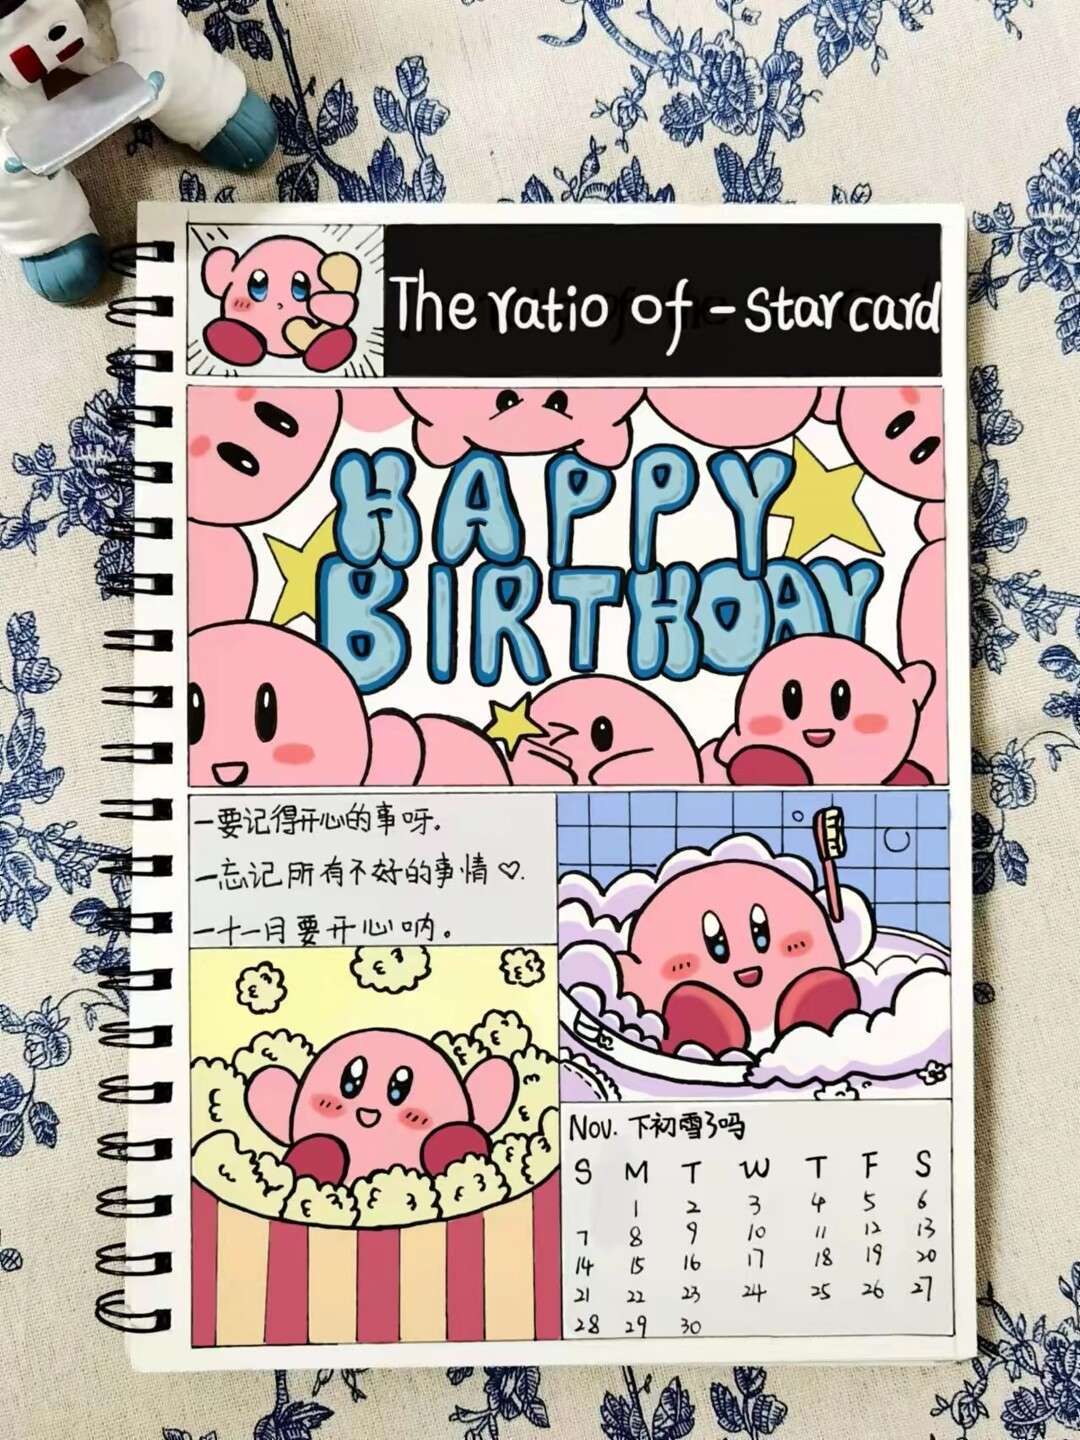 The ratio of - star card
HAPPY
BIRTHDAY
一要记得开心的事呀。
一忘记所有不好的事情♡.
一十一月要开心呐。
Nov. 下初雪了吗
S M T W T F S
1 2 3 4 5 6
7 8 9 10 11 12 13
14 15 16 17 18 19 20
21 22 23 24 25 26 27
28 29 30